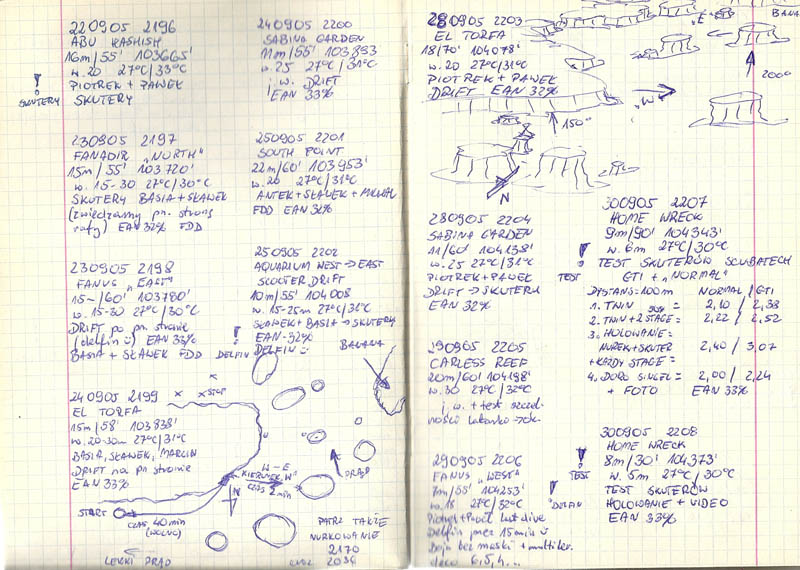 220905 2196
ABU KASHISH
16m/55' 103665'
w.20 27°C/33°C
PIOTREK + PAWEŁ
SKUTERY
!
SKUTERY
230905 2197
FANADIR „NORTH"
15m/55' 103720'
w. 15-30 27°C/30°C
SKUTERY BASIA + SŁAWEK
(zwiedzamy pn. stronę
rafy) EAN 32% FDD
230905 2198
FANUS „EAST"
15m/60' 103780'
w. 15-30 27°C/30°C
DRIFT po pn. stronie
(delfin ü) EAN 33%
BASIA + SŁAWEK FDD
!
DELFIN
240905 2199
EL TORFA
15m/58' 103838'
w. 20-30m 27°C/31°C
BASIA, SŁAWEK, MARCIN
DRIFT na pn stronie
EAN 33%
240905 2200
SABINA GARDEN
11m/55' 103893
w. 25 27°C/31°C
j. w. DRIFT
EAN 33%
250905 2201
SOUTH POINT
22m/60' 103953'
w. 20 27°C/31°C
ANTEK + SŁAWEK + MICHAŁ
FDD EAN 32%
250905 2202
AQUARIUM WEST → EAST
SCOOTER DRIFT
10m/55' 104008
w. 15-25m 27°C/31°C
SŁAWEK + BASIA → SKUTERY
EAN-32%
DELFIN ü
BANANA
STOP
W – E
KIERUNEK „W"
CZAS 2 min
PRĄD
N
START
CZAS 40 min
(WOLNO)
LEKKI PRĄD
PATRZ TAKŻE
NURKOWANIE
2170
2036
280905 2203
EL TORFA
18/70' 104078'
w. 20 27°C/31°C
PIOTREK + PAWEŁ
DRIFT EAN 32%
„E"
BANANA
200°
„W"
150°
N
280905 2204
SABINA GARDEN
11/60' 104138'
w. 25 27°C/31°C
PIOTREK + PAWEŁ
DRIFT → SKUTERY
EAN 32%
290905 2205
CARLESS REEF
20m/60' 104198'
w. 30 27°C/32°C
j. w. + test szczel-
ności
290905 2206
FANUS „WEST"
7m/55' 104253'
w. 15 27°C/32°C
Piotrek + Paweł last dive
Delfin przez 15 min ü
bez maski
!
DELFIN
300905 2207
HOME WRECK
9m/90' 104343'
w. 6m 27°C/30°C
!
TEST
TEST SKUTERÓW SCUBATECH
GTI + „NORMAL"
DYSTANS = 100m NORMAL / GTI
1. TWIN = 2,10 / 2,38
2. TWIN + 2 STAGE = 2,22 / 2,52
3. HOLOWANIE =
NUREK + SKUTER 2,40 / 3,07
+ KAŻDY STAGE =
4. DORO SINGEL = 2,00 / 2,24
+ FOTO EAN 33%
300905 2208
HOME WRECK
8m/30' 104373'
w. 5m 27°C/30°C
!
TEST
TEST SKUTERÓW
HOLOWANIE + VIDEO
EAN 33%